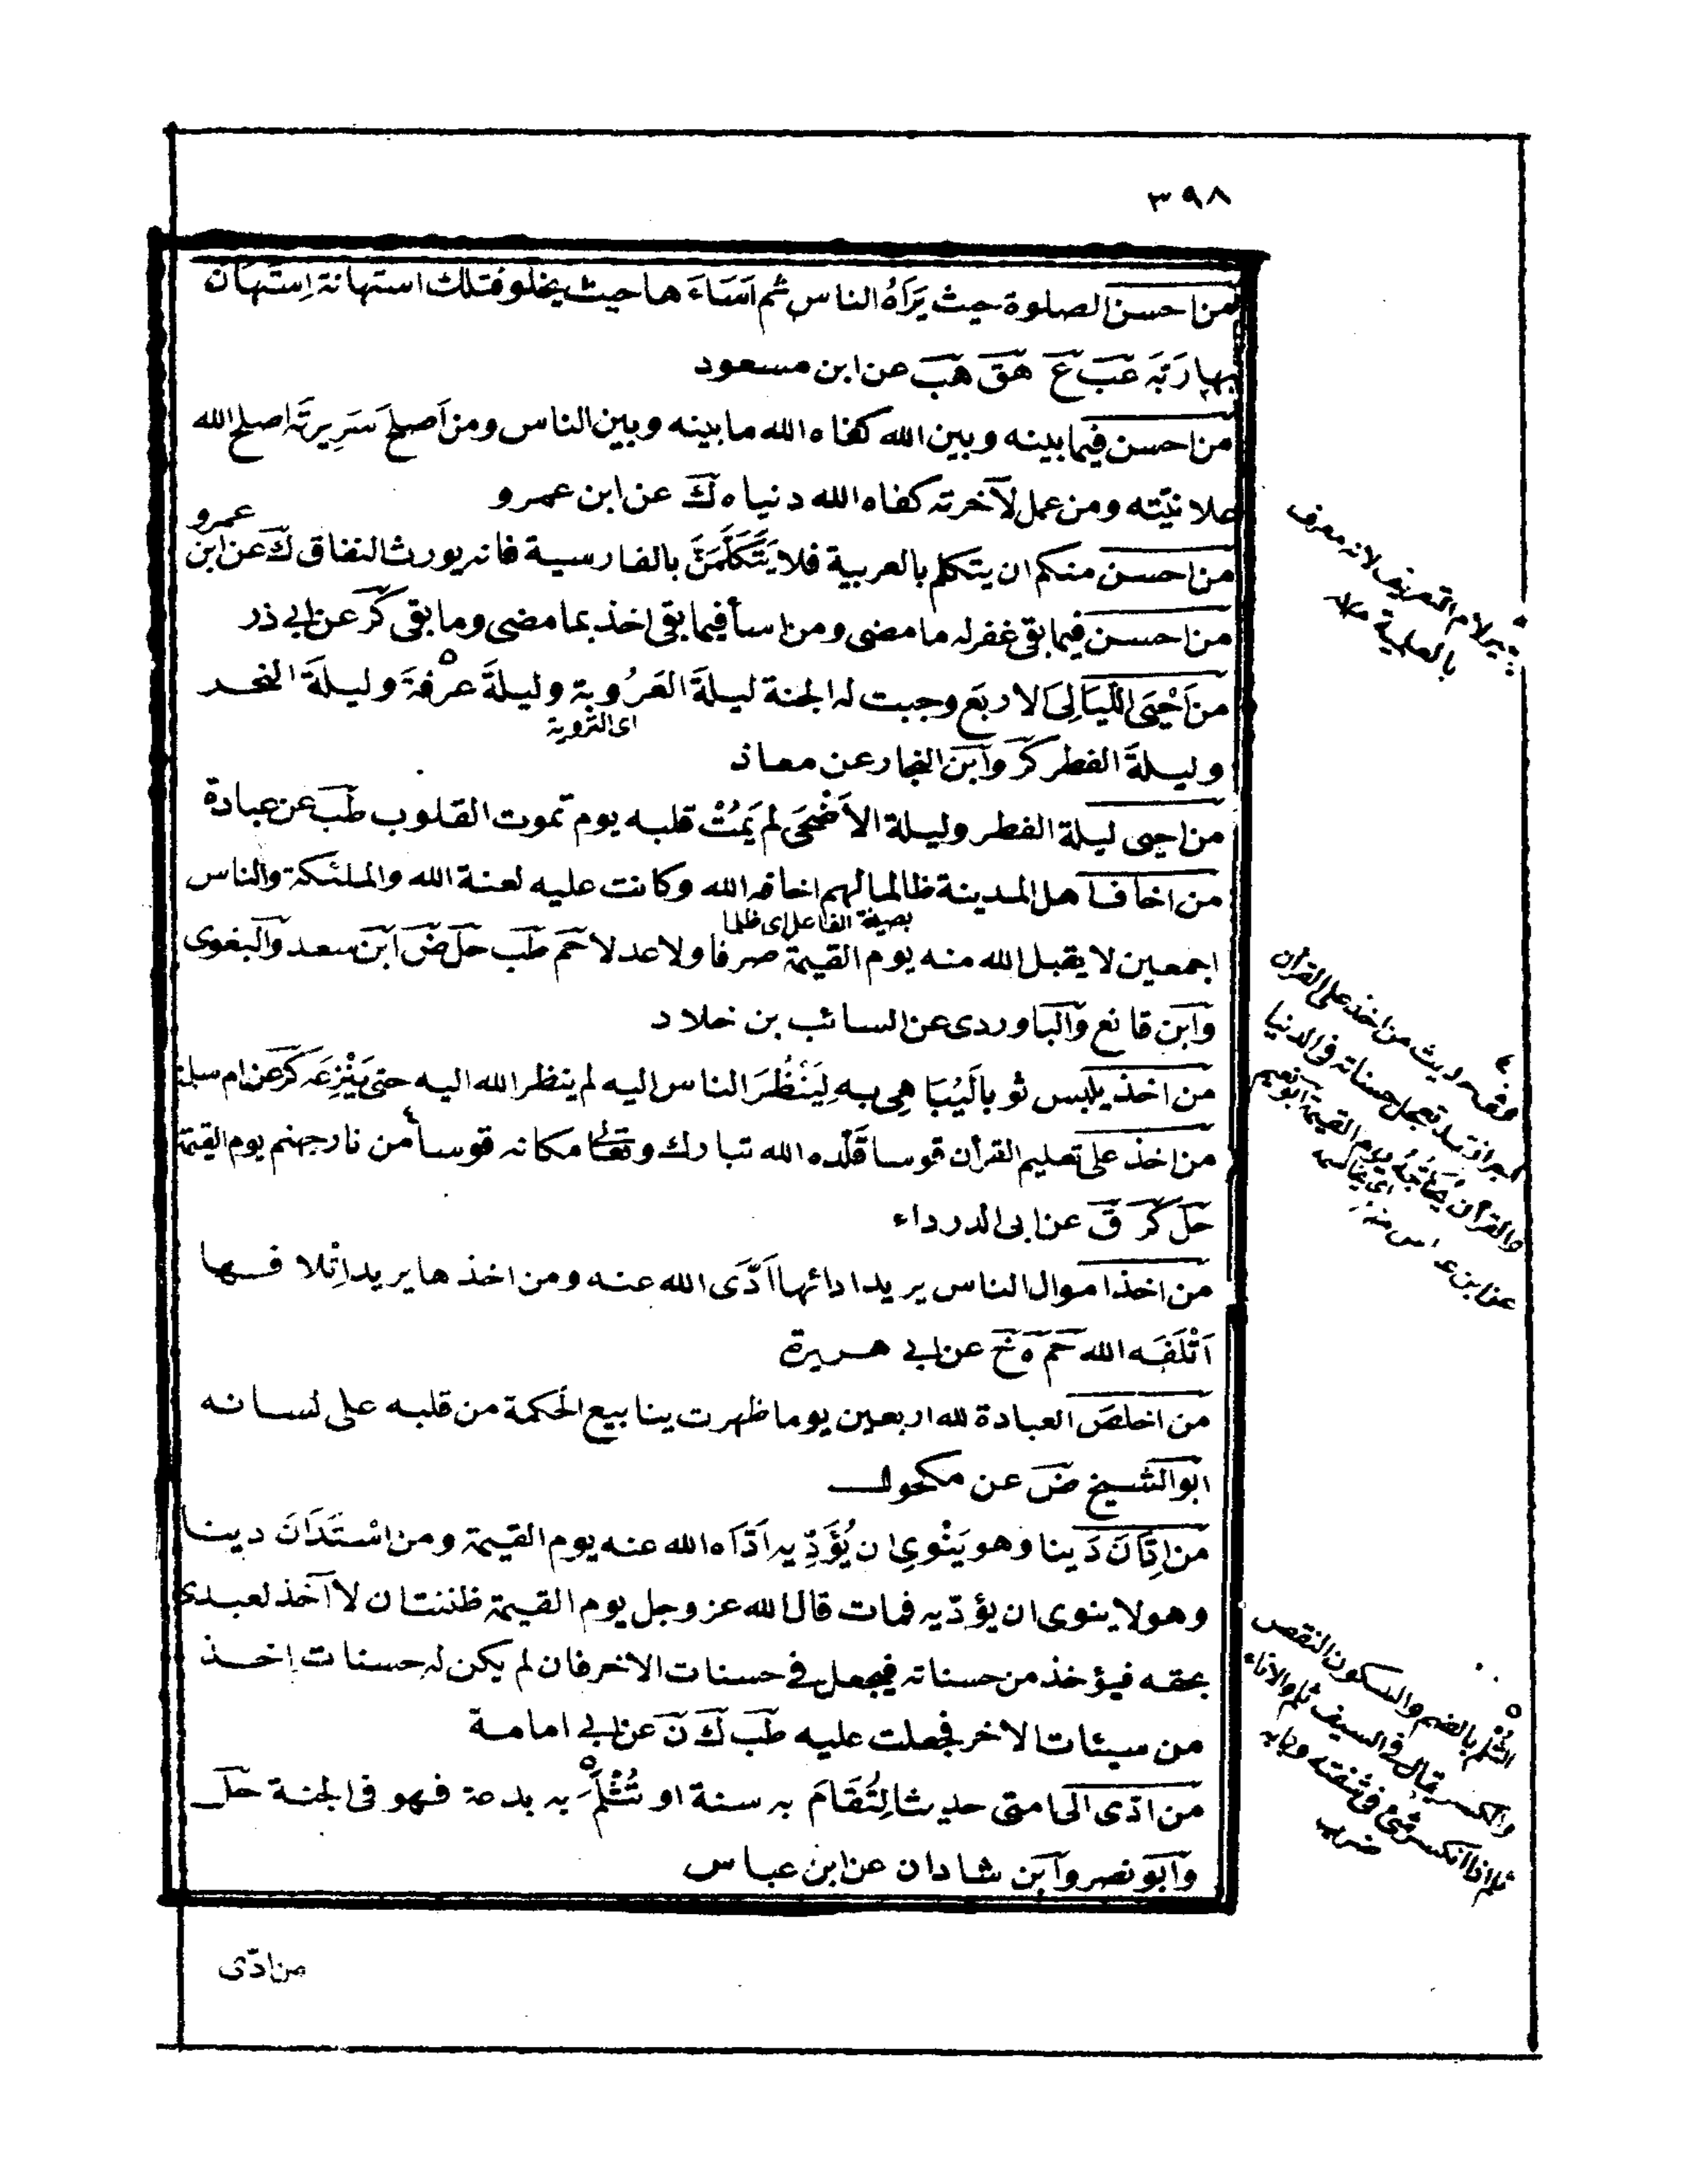 ٣٩٨
من احسن الصلوة حيث يَرَاهُ الناس ثم اَسَاءَ ها حيث يخلو فتلك استهانة اِسْتَهَانَ
بها ربَّه عَب عَ هَق هَب عن ابن مسعود
من احسن فيما بينه وبين الله كفاه الله ما بينه وبين الناس ومن اَصلحَ سَرِيرتَه اصلح الله
علانيّته ومن عمل لآخرته كفاه الله دنياه كَ عن ابن عمرو
من احسن منكم ان يتكلم بالعربية فلا يَتَكَلَّمَنَّ بالفارسية فانه يورث النفاق كَ عن ابن عمرو
من احسن فيما بقى غفر له ما مضى ومن اسأ فيما بقى اخذ بما مضى وما بقى كَر عن ابى ذر
من اَحْيَى اللّيَالِىَ الاربعَ وجبت له الجنة ليلةَ العَرُوبة وليلةَ عرفةَ وليلةَ النحر
اى التروية
وليلةَ الفطر كَر وآبن النجار عن معاذ
من احيى ليلة الفطر وليلة الاَضْحَى لم يَمُتْ قلبه يوم تموت القلوب طَب عن عبادة
من اخاف اهل المدينة ظالما لهم اخافه الله وكانت عليه لعنة الله والملئكة والناس
بصيغة الفاعل اى ظلما
اجمعين لا يقبل الله منه يوم القيمة صرفا ولا عدلا حَم طَب حَل ضَ آبن سعد وآلبغوى
وآبن قانع وآلباوردى عن السائب بن خلاد
من اخذ يلبس ثوبا لَيُبَاهِى به لِيَنْظُرَ الناس اليه لم ينظر الله اليه حتى يَنْزِعَه كَر عن ام سلمة
من اخذ على تعليم القرأن قوسا قَلّده الله تبارك وتعالى مكانه قوسا من نار جهنم يوم القيمة
حَل كَر قَ عن ابى الدرداء
من اخذ اموال الناس يريد ادائها اَدَّى الله عنه ومن اخذها يريد اِتْلافها
اَتْلَفَه الله حَم ه خَ عن ابى هريرة
من اخلصَ العبادة لله اربعين يوما ظهرت ينابيع الحكمة من قلبه على لسانه
ابو الشيخ ضَ عن مكحول
من اِدَّانَ دَينا وهو يَنْوِى ان يُؤَدِّيه اَدَّاه الله عنه يوم القيمة ومن اسْتَدَانَ دينا
وهو لا ينوى ان يؤدّيه فمات قال الله عز وجل يوم القيمة ظننت ان لا آخذ لعبدى
بحقه فيؤخذ من حسناته فيجعل فى حسنات الاخر فان لم يكن له حسنات اِخذ
من سيئات الاخر فجعلت عليه طَب كَ نَ عن ابى امامة
من ادّى الى امتى حديثا لِتُقَامَ به سنة او تُثْلَمَ به بدعة فهو فى الجنة حَل
وآبو نصر وآبن شاذان عن ابن عباس
لام التعريف لانه معرف
بالعلمية
وفى حديث من اخذ على القرأن
اجرا فقد تعجل حسناته فى الدنيا
والقرأن يُحَاجُّهُ يوم القيمة ابو نعيم
اى يخاصمه
عن ابن عباس منه
الثُلْم بالضم والسكون النقص
والكسر يقال فى السيف ثلم والاناء
ثلم اذا انكسر شئ فى شفته وبابه
ضرب
من ادّى